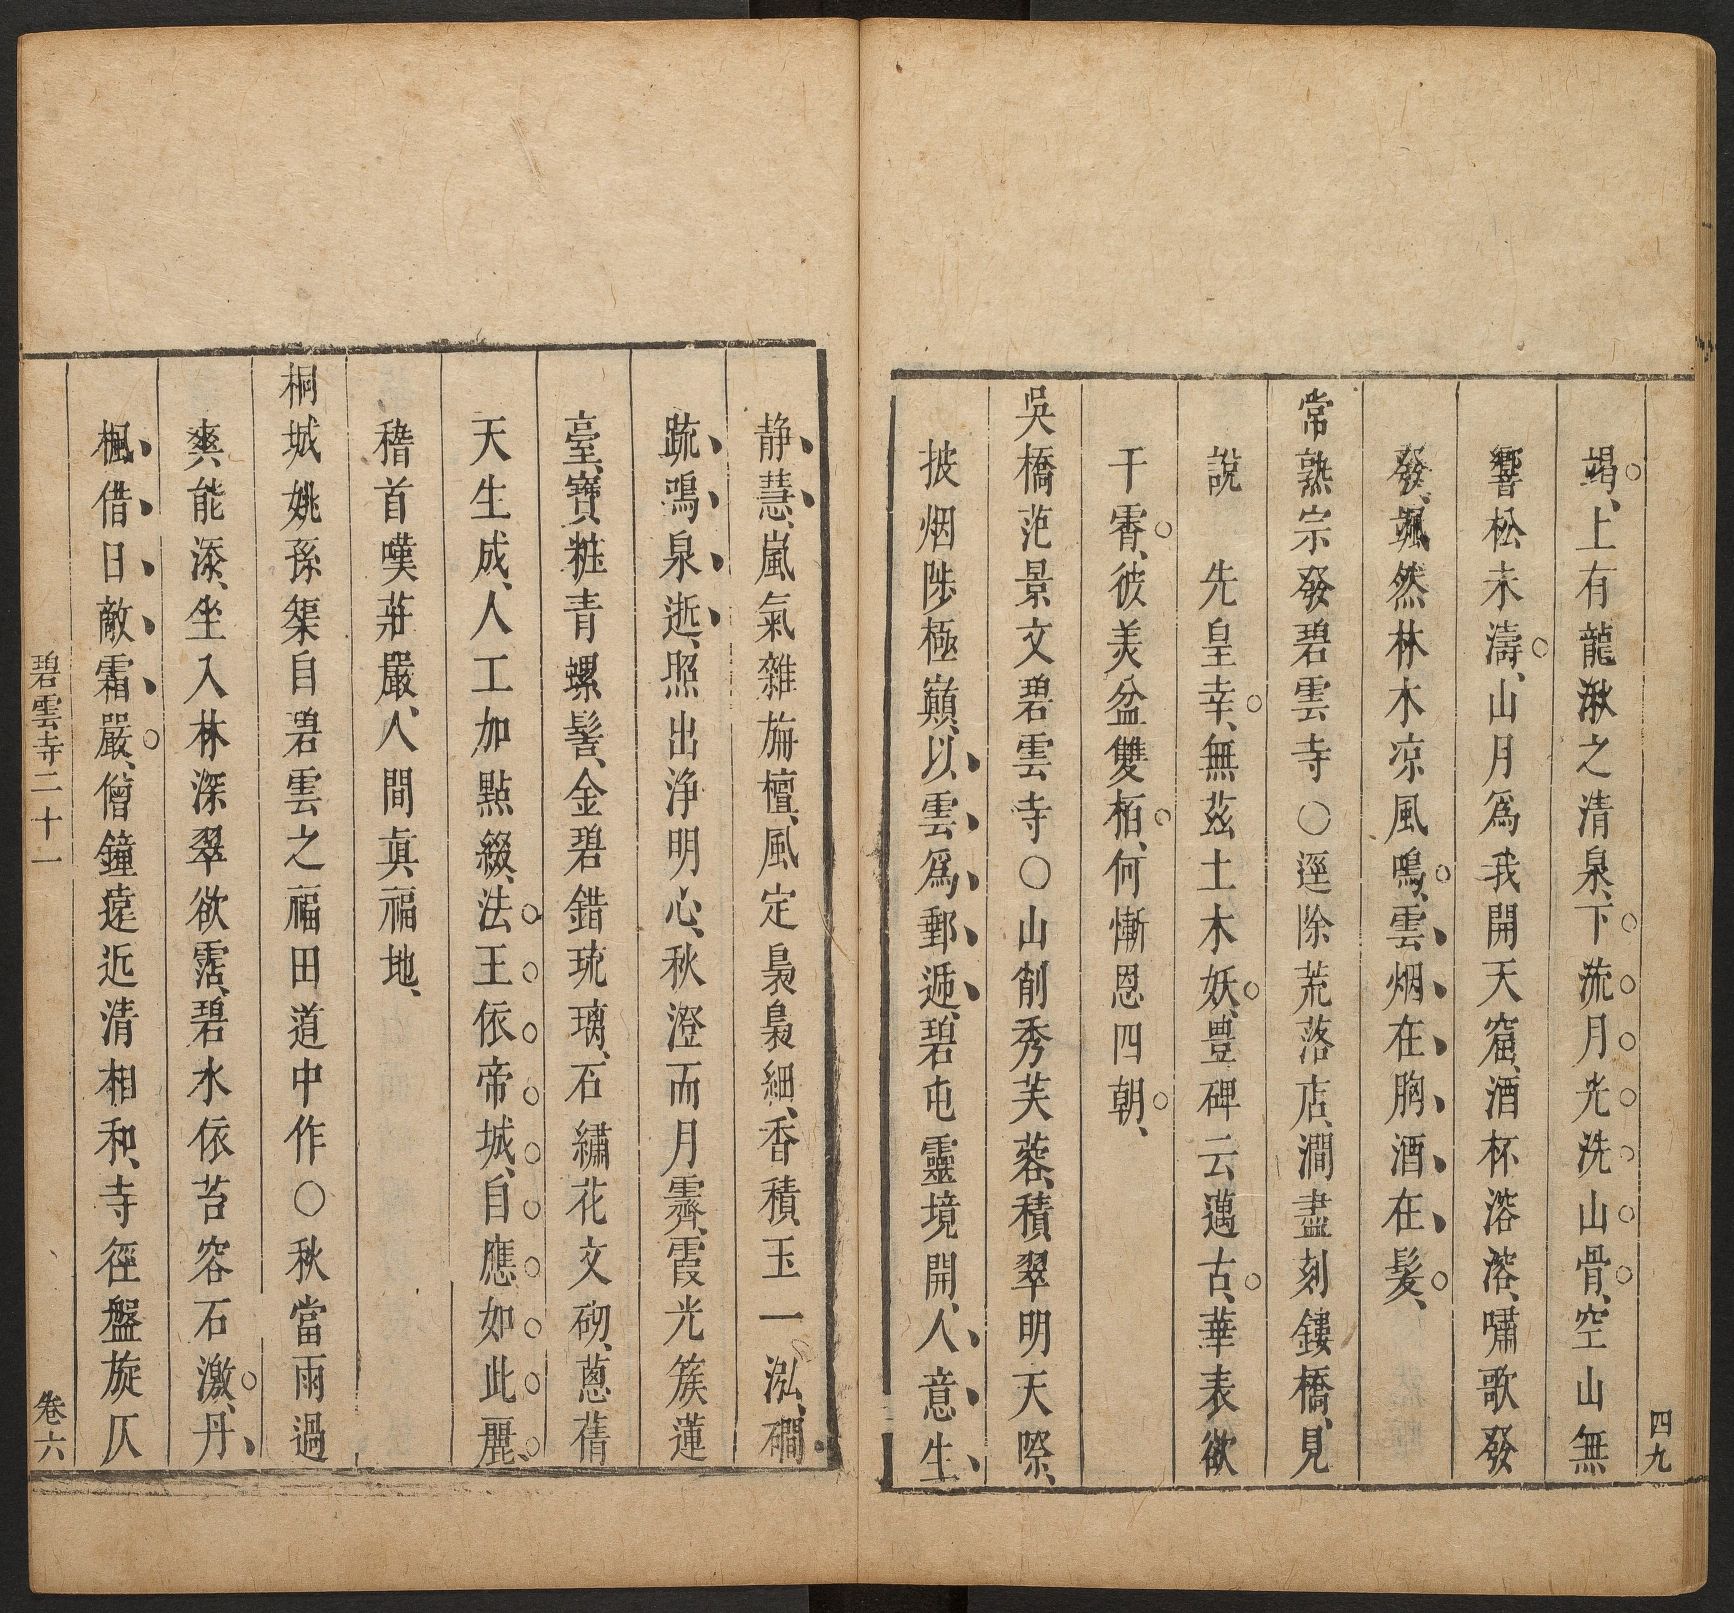 四九
竭、上有龍湫之清泉、下流月光洗山骨、空山無
響松未濤、山月爲我開天窟、酒杯溶溶、嘯歌發
發、颯然林木凉風鳴、雲烟在胸酒在髮、
常熟宗發碧雲寺○逕除荒落店、澗盡刻鏤橋、見
說　先皇幸、無茲土木妖、豊碑云邁古、華表欲
干霄、彼美盆雙栢、何慚恩四朝、
吳橋范景文碧雲寺○山削秀芙蓉、積翠明天際、
披烟陟極巔、以雲爲郵遞、碧屯靈境開、人意生
静慧、嵐氣雜旃檀、風定裊裊細、香積玉一泓、磵
疏鳴泉逝、照出淨明心、秋澄而月霽、霞光簇蓮
臺、寶粧青螺髻、金碧錯琉璃、石繡花文砌、蔥蒨
天生成、人工加點綴、法王依帝城、自應如此麗、
稽首嘆莊嚴、人間眞福地、
桐城姚孫榘自碧雲之福田道中作○秋當雨過
爽能添、坐入林深翠欲霑、碧水依苔容石激、丹
楓借日敵霜嚴、僧鐘遠近清相和、寺徑盤旋仄
碧雲寺二十一
卷六